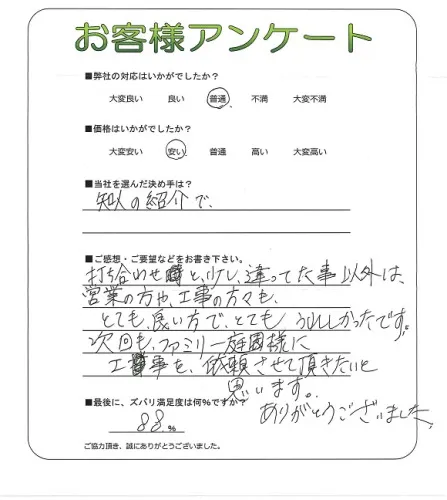 お客様アンケート
■弊社の対応はいかがでしたか？
大変良い 良い 普通 不満 大変不満
■価格はいかがでしたか？
大変安い 安い 普通 高い 大変高い
■当社を選んだ決め手は？
知人の紹介で、
■ご感想・ご要望などをお書き下さい。
打ち合わせ時と、少し、違ってた事以外は、
営業の方や、工事の方々も、
とても、良い方で、とても うれしかったです。
次回も、ファミリー庭園様に
工事を、依頼させて頂きたいと
思います。
■最後に、ズバリ満足度は何％ですか？
ありがとうございました。
88.%
ご協力頂き、誠にありがとうございました。